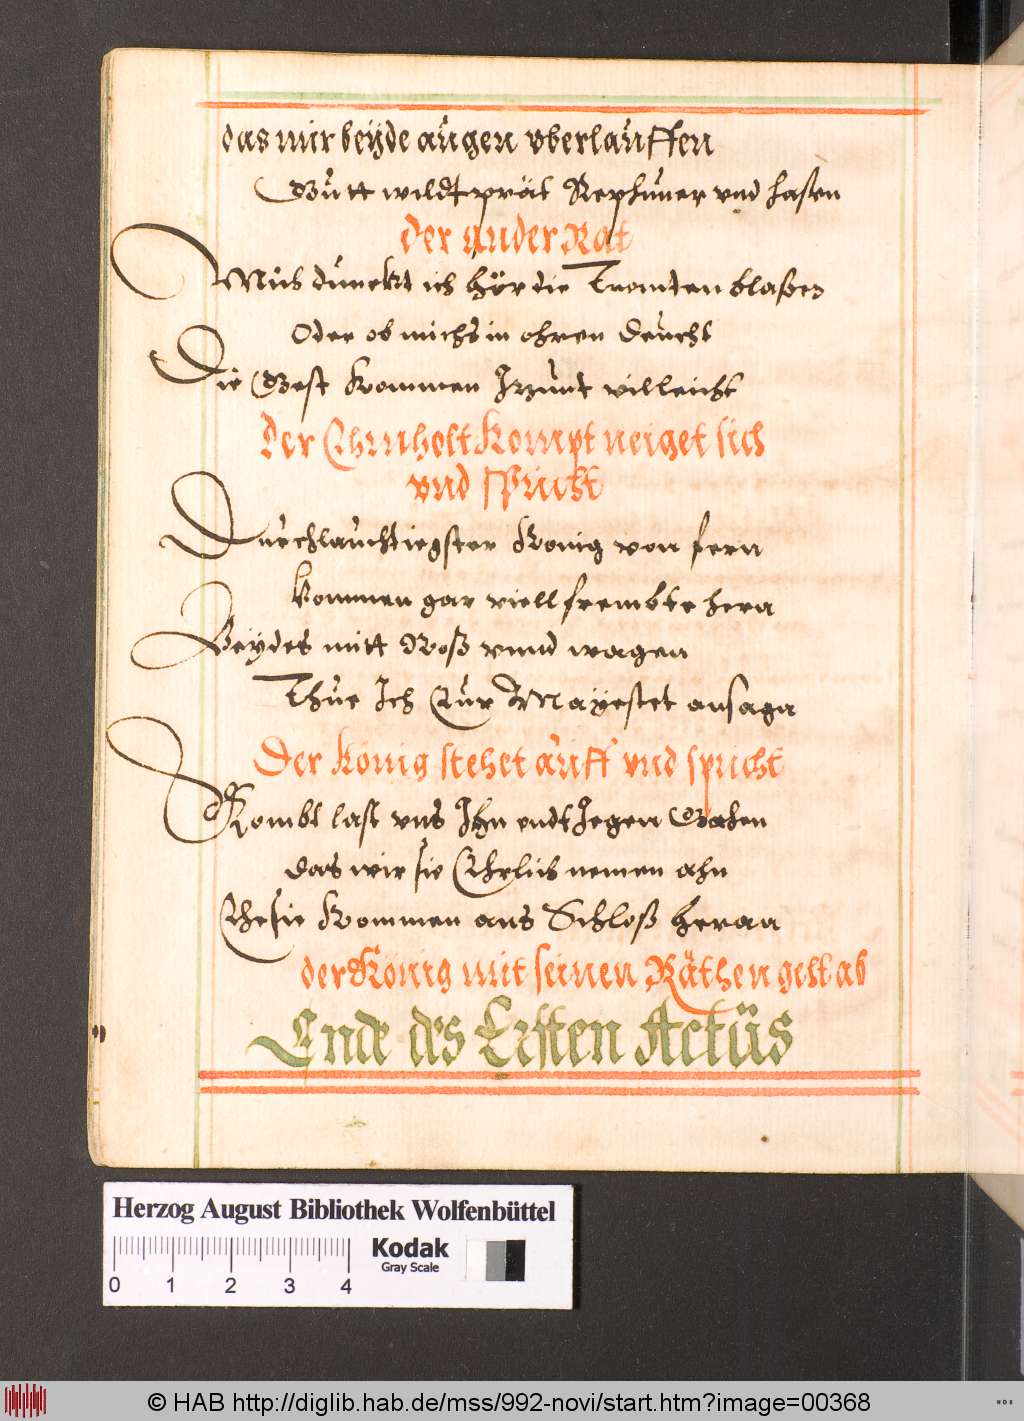 das mir beÿde augen vberlauffen
Gutt wildtprät Rephuner vnd hasen
der ander Rat
Mich dunckt ich hör die Tromten blaßen
Oder ob michs in ohren deucht
Die Gest kommen Itzunt villeicht
Der Ehrnholt kompt neiget sich
vnd spricht
Durchlauchtiegster König von fern
kommen gar viell frembte hern
Beÿdes mitt Roß vnnd wagen
Thue Ich Eur Maÿestet ansagen
Der König stehet auff vnd spricht
Kombt last vns Ihn endt Iegen Gahen
das wir sie Ehrlich nemen ahn
Ehe sie kommen ans Schloß heran
der König mit seinen Räthen geht ab
Ende des Ersten Actüs
Herzog August Bibliothek Wolfenbüttel
0 1 2 3 4
Kodak
Gray Scale
© HAB http://diglib.hab.de/mss/992-novi/start.htm?image=00368